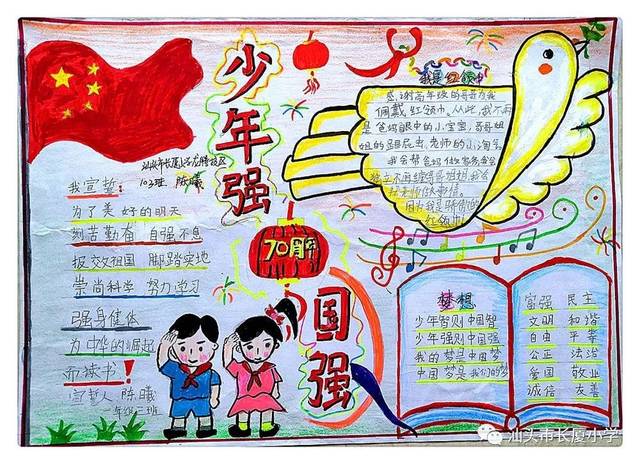 少年强
国强
70周年
汕头市长厦小学龙腾校区
103班 陈曦
我宣誓:
为了美好的明天
刻苦勤奋 自强不息
报效祖国 脚踏实地
崇尚科学 努力学习
强身健体
为中华的崛起
而读书!
宣誓人 陈曦
一年级三班
我是红领巾
感谢高年级的哥哥为我
佩戴红领巾。从此,我不再
是爸妈眼中的小宝宝,哥哥姐
姐的跟屁虫、老师的小淘气
我会帮爸妈做家务,学会
独立不再缠哥哥姐姐,我会
因为我是骄傲的
红领巾!
梦想
少年智则中国智
少年强则中国强
我的梦是中国梦
中国梦是我们的梦
富强 民主
文明 和谐
自由 平等
公正 法治
爱国 敬业
诚信 友善
汕头市长厦小学